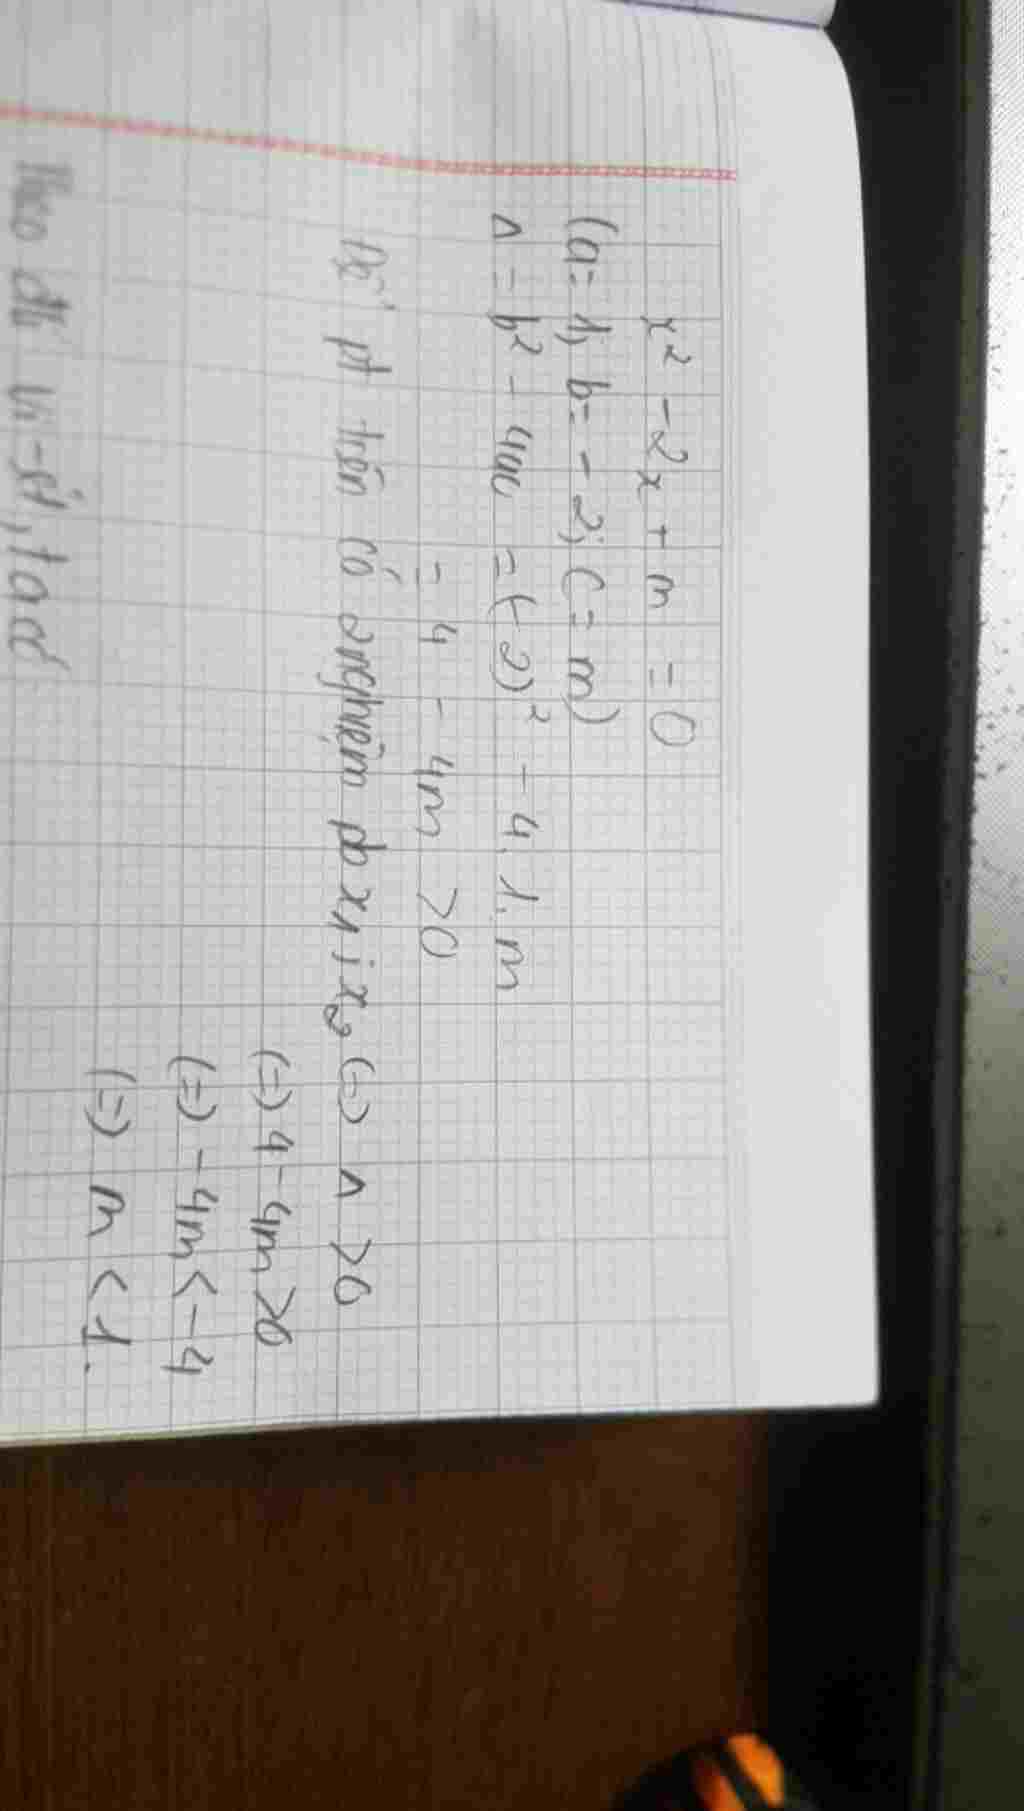 x² - 2x + m = 0
(a = 1; b = - 2; c = m)
Δ = b² - 4ac = (-2)² - 4.1.m
= 4 - 4m > 0
Để pt trên có 2 nghiệm pb x₁; x₂ (=) Δ > 0
(=) 4 - 4m > 0
(=) - 4m < - 4
(=) m < 1.
Theo đlí Vi-ét, ta có